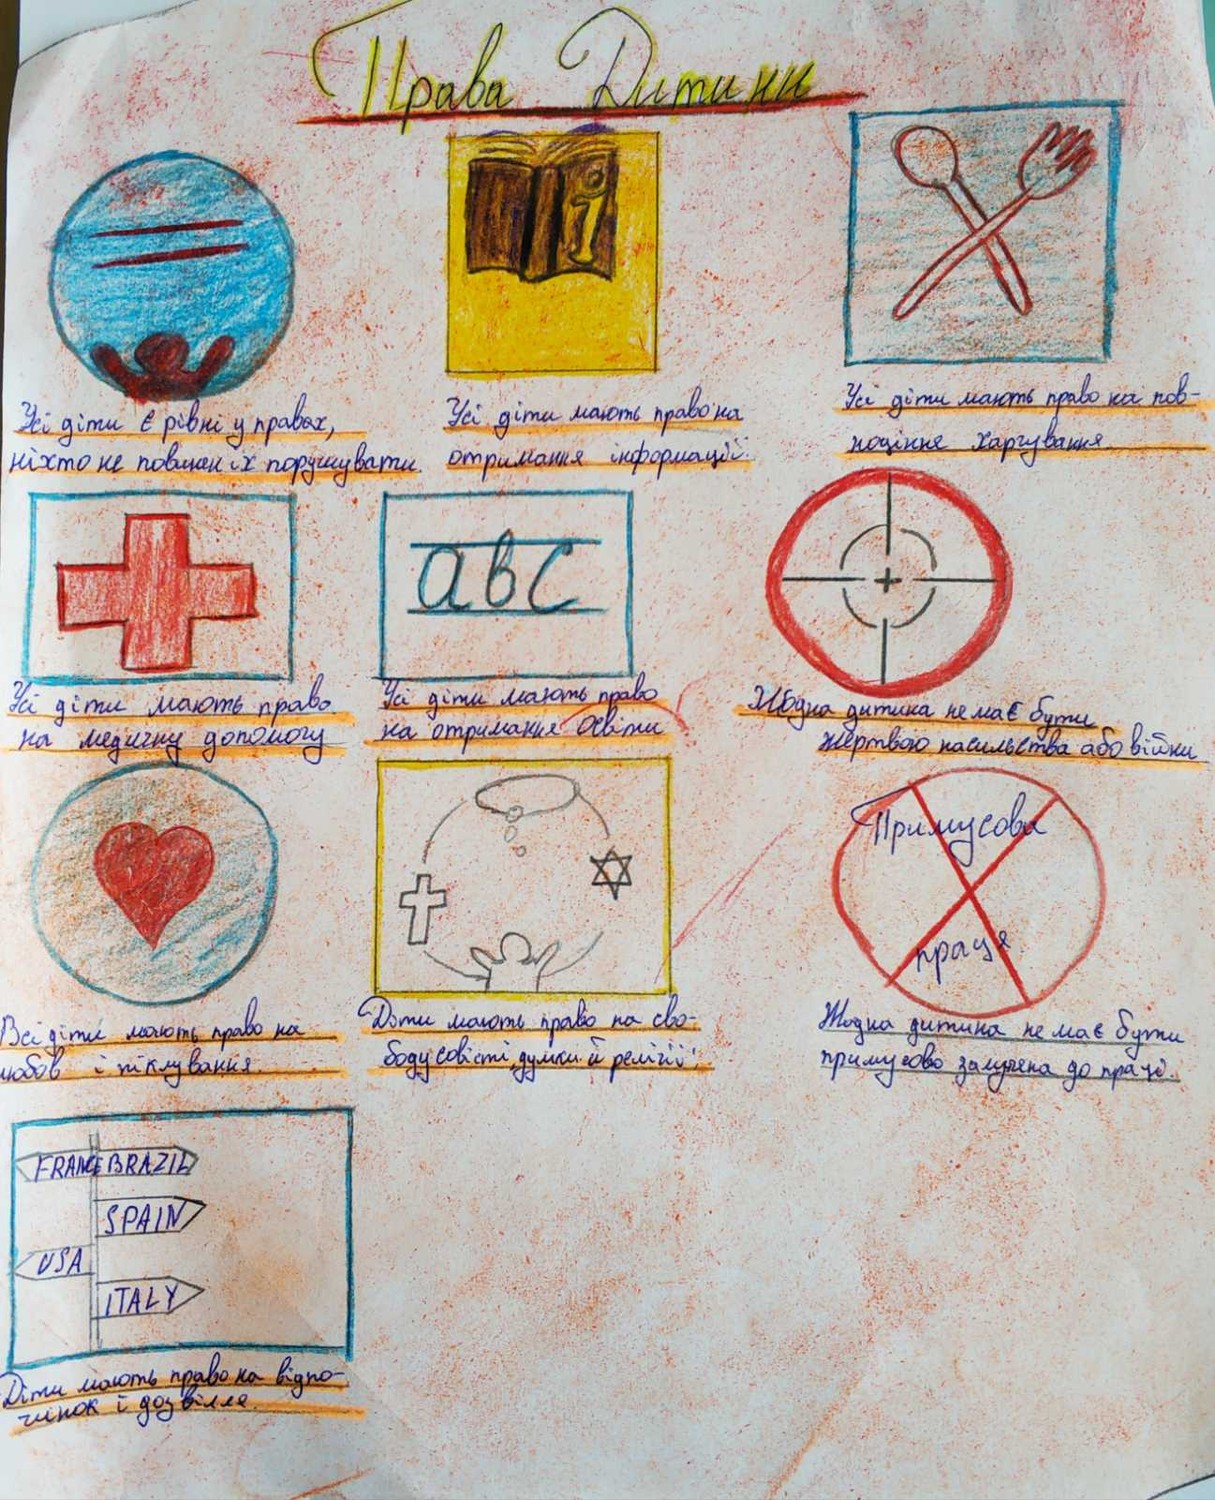 Права Дитини
i
Усі діти є рівні у правах,
ніхто не повинен їх порушувати.
Усі діти мають право на
отримання інформації.
Усі діти мають право на пов-
ноцінне харчування.
abc
Усі діти мають право
на медичну допомогу
Усі діти мають право
на отримання освіти
Жодна дитина не має бути
жертвою насильства або війни
Примусова
праця
Всі діти мають право на
любов і піклування.
Діти мають право на сво-
боду совісті, думки й релігії.
Жодна дитина не має бути
примусово залучена до праці.
FRANCE BRAZIL
SPAIN
USA
ITALY
Діти мають право на відпо-
чинок і дозвілля.